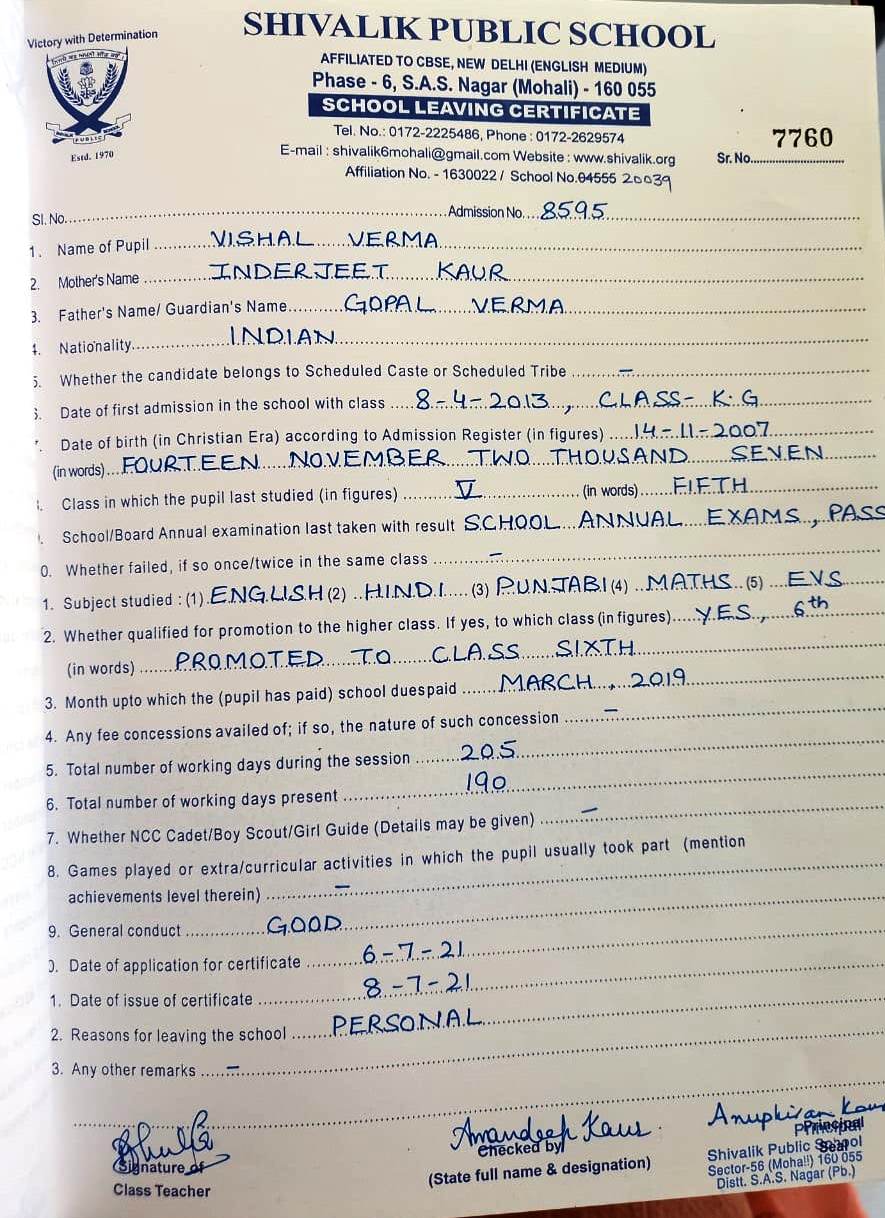 Victory with Determination
SHIVALIK PUBLIC SCHOOL
AFFILIATED TO CBSE, NEW DELHI (ENGLISH MEDIUM)
Phase - 6, S.A.S. Nagar (Mohali) - 160 055
SCHOOL LEAVING CERTIFICATE
Tel. No.: 0172-2225486, Phone : 0172-2629574
E-mail : shivalik6mohali@gmail.com Website : www.shivalik.org
Affiliation No. - 1630022 / School No.04555 20039
PUBLIC
Estd. 1970
7760
Sr. No.
Sl. No. Admission No. 8595
1. Name of Pupil VISHAL VERMA
2. Mother's Name INDERJEET KAUR
3. Father's Name/ Guardian's Name GOPAL VERMA
4. Nationality INDIAN
5. Whether the candidate belongs to Scheduled Caste or Scheduled Tribe –
6. Date of first admission in the school with class 8-4-2013, CLASS- K.G
Date of birth (in Christian Era) according to Admission Register (in figures) 14-11-2007
(in words) FOURTEEN NOVEMBER TWO THOUSAND SEVEN
Class in which the pupil last studied (in figures) V (in words) FIFTH
School/Board Annual examination last taken with result SCHOOL ANNUAL EXAMS, PASS
0. Whether failed, if so once/twice in the same class –
1. Subject studied : (1) ENGLISH (2) HINDI (3) PUNJABI (4) MATHS (5) EVS
2. Whether qualified for promotion to the higher class. If yes, to which class (in figures) YES, 6th
(in words) PROMOTED TO CLASS SIXTH
3. Month upto which the (pupil has paid) school duespaid MARCH, 2019
4. Any fee concessions availed of; if so, the nature of such concession –
5. Total number of working days during the session 205
6. Total number of working days present 190
7. Whether NCC Cadet/Boy Scout/Girl Guide (Details may be given) –
8. Games played or extra/curricular activities in which the pupil usually took part (mention
achievements level therein) –
9. General conduct GOOD
0. Date of application for certificate 6-7-21
1. Date of issue of certificate 8-7-21
2. Reasons for leaving the school PERSONAL
3. Any other remarks –
Signature of
Class Teacher
Amandeep Kaur
Checked by
(State full name & designation)
Anupkiran Kaur
Principal
Principal
Seal
Shivalik Public School
Sector-56 (Mohali) 160 055
Distt. S.A.S. Nagar (Pb.)